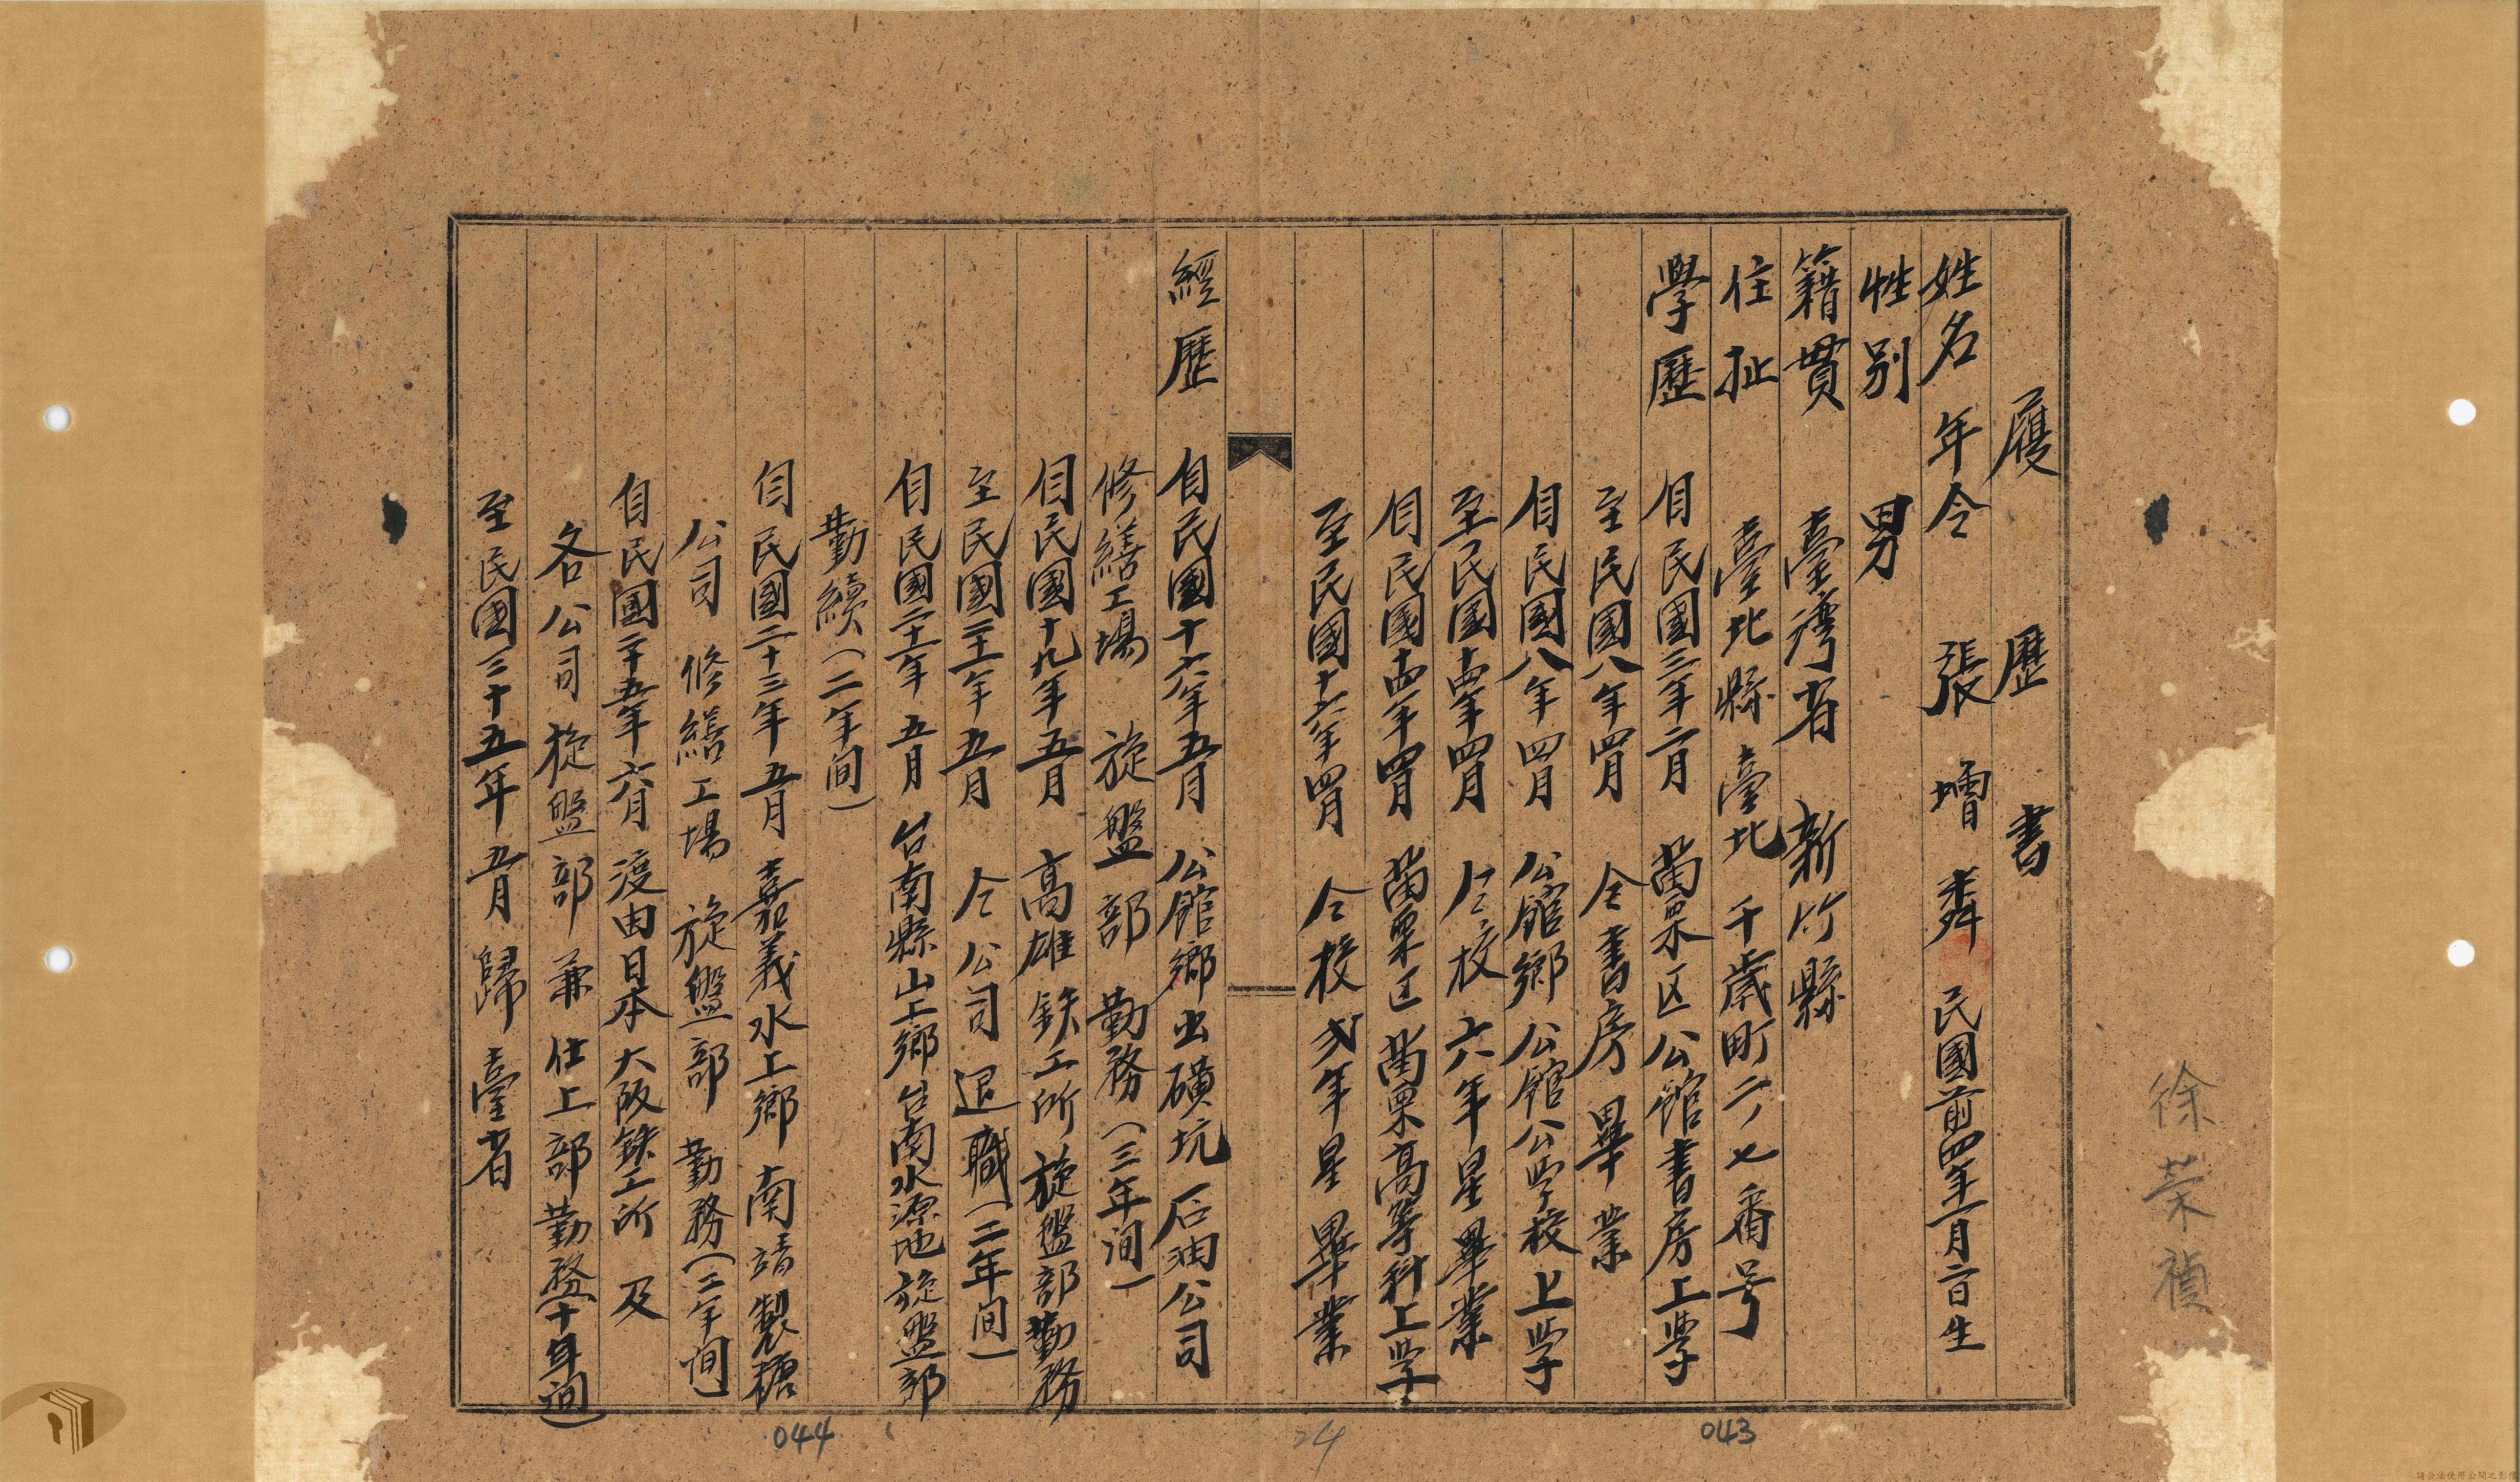 履歷書
姓名 年令 張増舜 民國前四年一月六日生
性別 男
籍貫 臺灣省 新竹縣
住址 臺北縣臺北千歲町二ノ七番号
學歷 自民國三年二月 苗栗区公館書房上学
至民國八年四月 仝書房畢業
自民國八年四月 公館鄉公館公学校上学
至民國十四年四月 仝校六年星畢業
自民國十四年四月 苗栗区苗栗高等科上学
至民國十六年四月 仝校弐年星畢業
經歷 自民國十六年五月 公館鄉出磺坑石油公司
修繕工場 旋盤部 勤務(三年间)
自民國十九年五月 高雄鉄工所旋盤部勤務
至民國二十一年五月 仝公司退職(二年间)
自民國二十一年五月 台南縣山上鄉台南水源地旋盤部
勤續(二年间)
自民國二十三年五月 嘉義水上鄉 南靖製糖
公司 修繕工場 旋盤部 勤務(二年间)
自民國二十五年六月 渡由日本大阪鉄工所 及
各公司旋盤部兼仕上部勤務(十年间)
至民國三十五年五月 歸臺省
徐荣禎
043
24
044